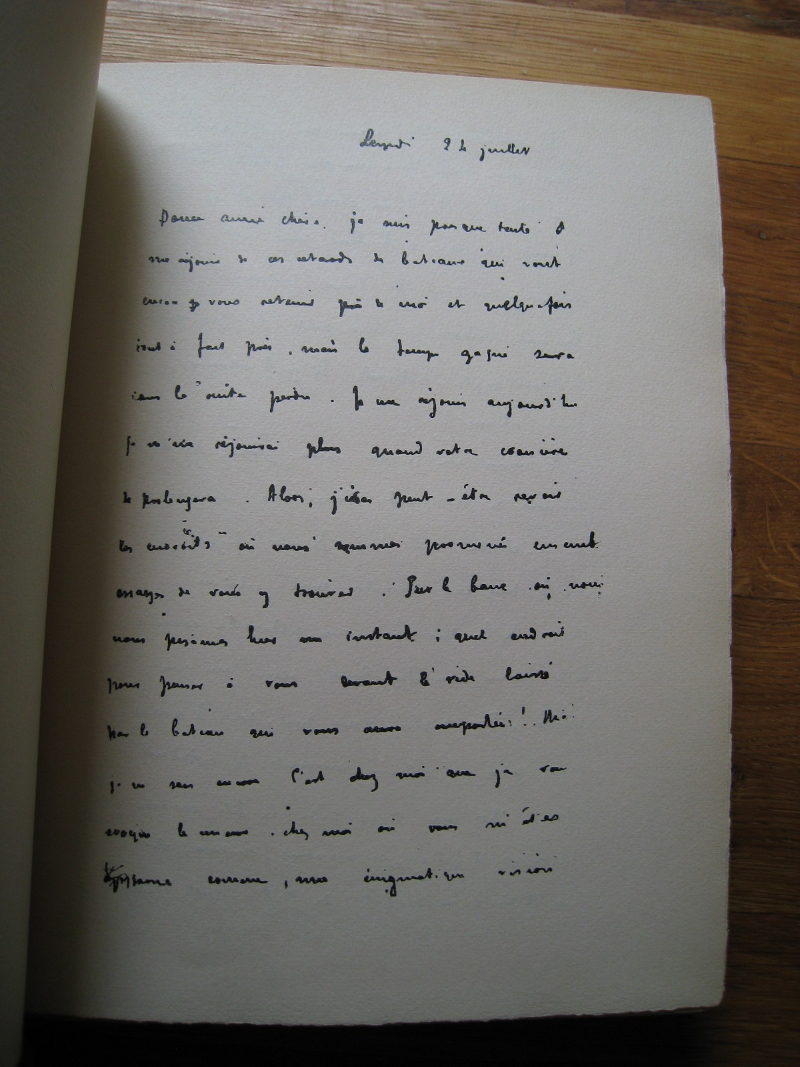 24 juillet
Douce amie chère, je suis presque tenté d
me réjouir de ces retards de bateaux qui vont
encore vous retenir près de moi et quelquefois
tout à fait près, mais le temps gagné sera
dans la suite perdu. Je me réjouis aujourd'hui
je m'en réjouirai plus quand votre croisière
se prolongera. Alors, j'irai peut-être revoir
les endroits où nous sommes promené ensemble
essayer de vous y trouver. Sur le banc où nous
nous posâmes hier un instant ; quel endroit
pour penser à vous devant le vide laissé
par le bateau qui vous aura emportée !
je ne sais encore c'est chez moi que je vous
le mieux. chez moi où vous m'êtes
comme, une énigmatique vision